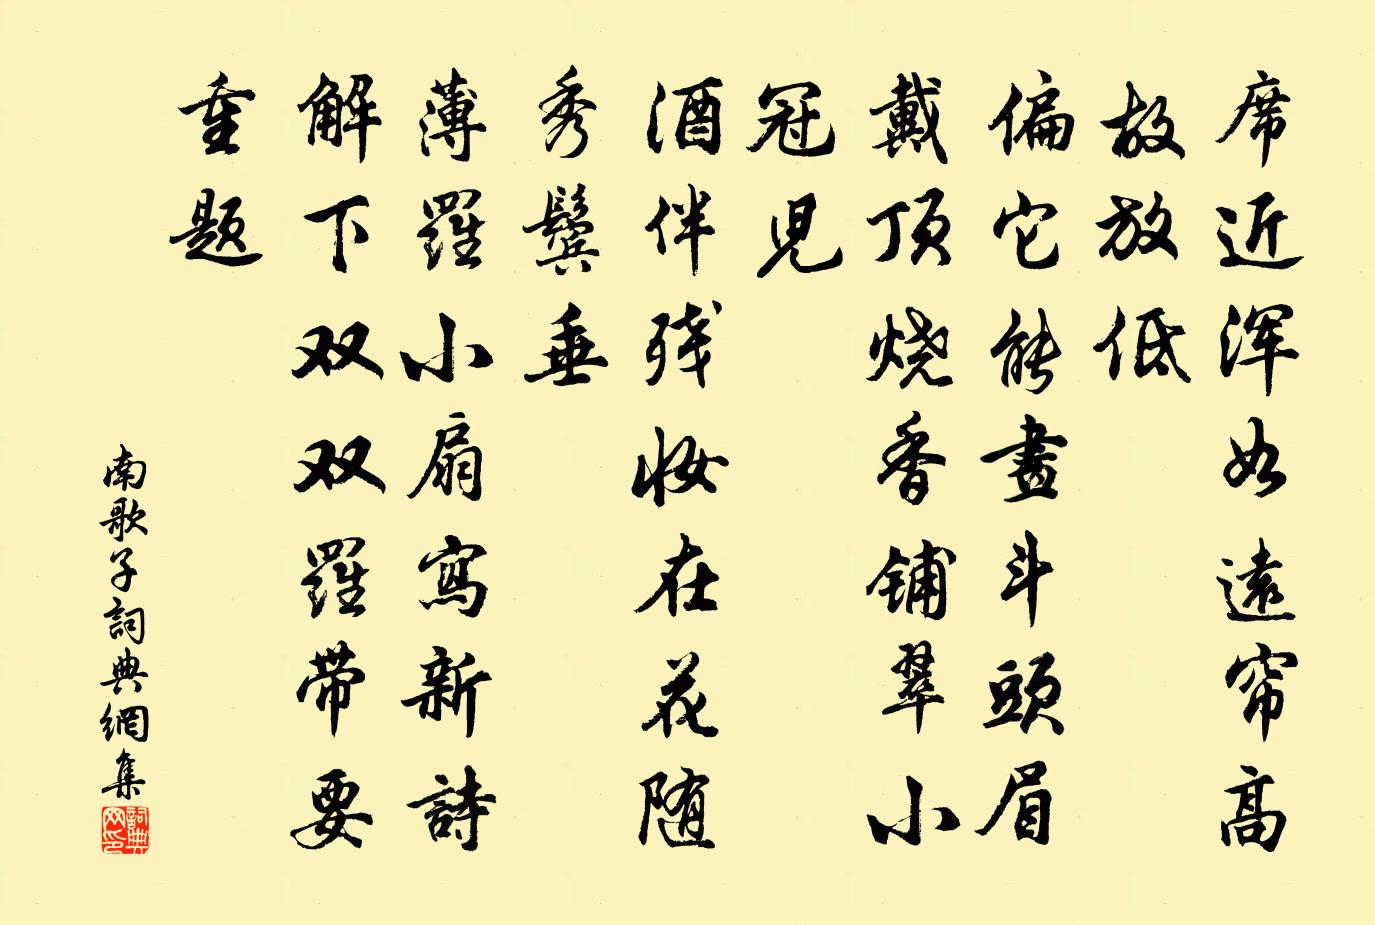 席近浑如遠帘高
故放低
偏它能畫斗頭眉
戴頂烧香铺翠小
冠兒
酒伴残妆在花随
秀鬢垂
薄羅小扇寫新詩
解下双双羅带要
重题
南歌子詞典網集
詞典
网印